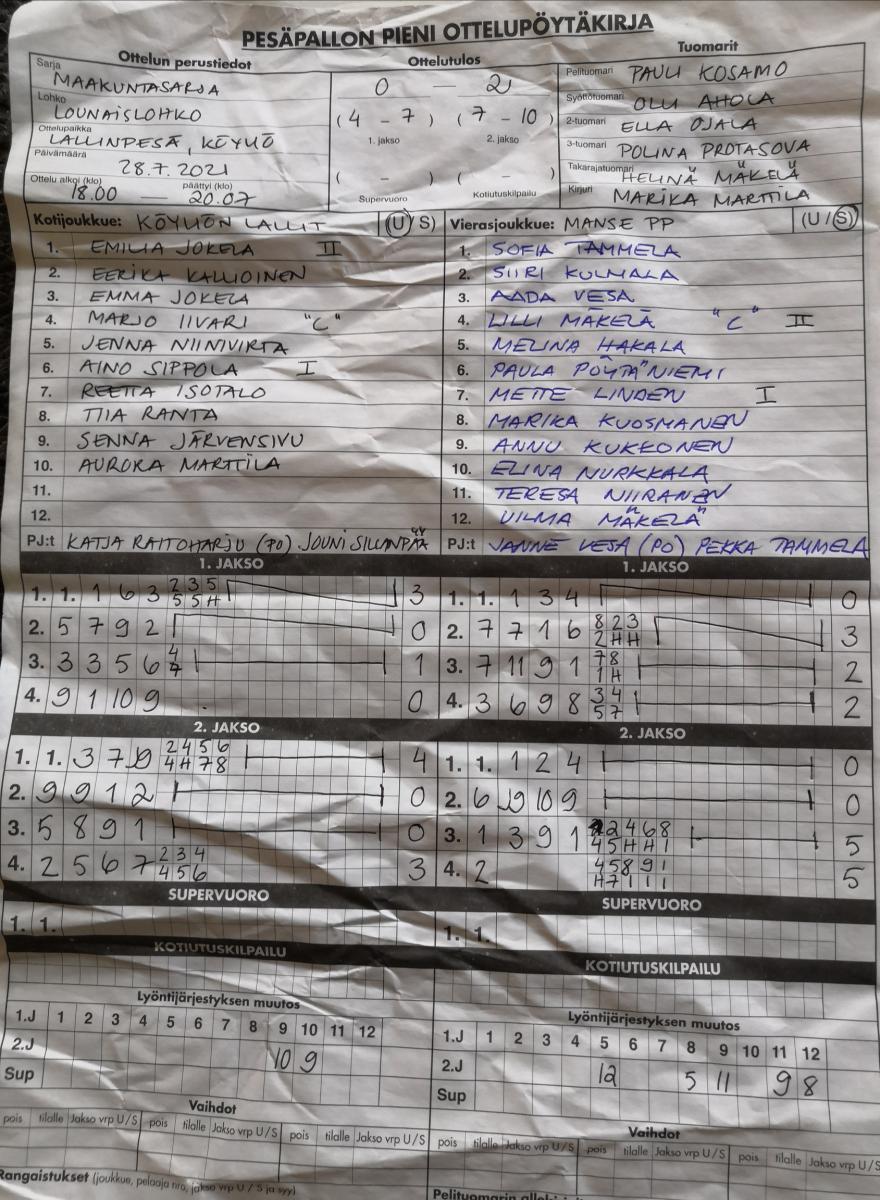 PESÄPALLON PIENI OTTELUPÖYTÄKIRJA
Ottelun perustiedot
Sarja MAAKUNTASARJA
Lohko LOUNAISLOHKO
Ottelupaikka LALLINPESÄ, KÖYLIÖ
Päivämäärä 28.7.2021
Ottelu alkoi (klo) päättyi (klo)
18.00 — 20.07
Ottelutulos
0 — 2
(4 - 7) (7 - 10)
1. jakso 2. jakso
( - ) ( - )
Supervuoro Kotiutuskilpailu
Tuomarit
Pelituomari PAULI KOSAMO
Syöttötuomari OLLI AHOLA
2-tuomari ELLA OJALA
3-tuomari POLINA PROTASOVA
Takarajatuomari HELINÄ MÄKELÄ
Kirjuri MARIKA MARTTILA
Kotijoukkue: KÖYLIÖN LALLIT (U/S)
1. EMILIA JOKELA II
2. EERIKA KALLIOINEN
3. EMMA JOKELA
4. MARJO IIVARI "C"
5. JENNA NIINIVIRTA
6. AINO SIPPOLA I
7. REETTA ISOTALO
8. TIIA RANTA
9. SENNA JÄRVENSIVU
10. AURORA MARTTILA
11.
12.
PJ:t KATJA RAITOHARJU (PO) JOUNI SILLANPÄÄ
Vierasjoukkue: MANSE PP (U/S)
1. SOFIA TAMMELA
2. SIIRI KULMALA
3. AADA VESA
4. LILLI MÄKELÄ "C" II
5. MELINA HAKALA
6. PAULA PÖYTÄNIEMI
7. METTE LINDEN I
8. MARIKA KUOSMANEN
9. ANNU KUKKONEN
10. ELINA NURKKALA
11. TERESA NIIRANEN
12. VILMA MÄKELÄ
PJ:t JANNE VESA (PO) PEKKA TAMMELA
1. JAKSO
1. 1. 1 6 3 2 3 5 3
5 5 H
2. 5 7 9 2 0
3. 3 3 5 6 4 1
7
4. 9 1 10 9 0
2. JAKSO
1. 1. 3 7 9 2 4 5 6 4
4 H 7 8
2. 9 9 1 2 0
3. 5 8 9 1 0
4. 2 5 6 7 2 3 4 3
4 5 6
SUPERVUORO
1. 1.
KOTIUTUSKILPAILU
Lyöntijärjestyksen muutos
1.J 1 2 3 4 5 6 7 8 9 10 11 12
2.J 10 9
Sup
Vaihdot
pois tilalle Jakso vrp U/S pois tilalle Jakso vrp U/S pois tilalle Jakso vrp U/S
Rangaistukset (joukkue, pelaaja nro, jakso vrp U / S ja syy)
1. JAKSO
1. 1. 1 3 4 0
2. 7 7 1 6 8 2 3 3
2 H H
3. 7 11 9 1 7 8 2
1 H
4. 3 6 9 8 3 4 2
5 7
2. JAKSO
1. 1. 1 2 4 0
2. 6 9 10 9 0
3. 1 3 9 1 2 4 6 8 5
4 5 H H 1
4. 2 4 5 8 9 1 5
H 7 1 1 1
SUPERVUORO
1. 1.
KOTIUTUSKILPAILU
Lyöntijärjestyksen muutos
1.J 1 2 3 4 5 6 7 8 9 10 11 12
2.J 12 5 11 9 8
Sup
Vaihdot
pois tilalle Jakso vrp U/S pois tilalle Jakso vrp U/S pois tilalle Jakso vrp U/S